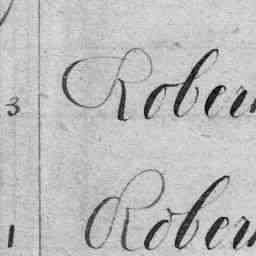 3 Rober
1 Rober